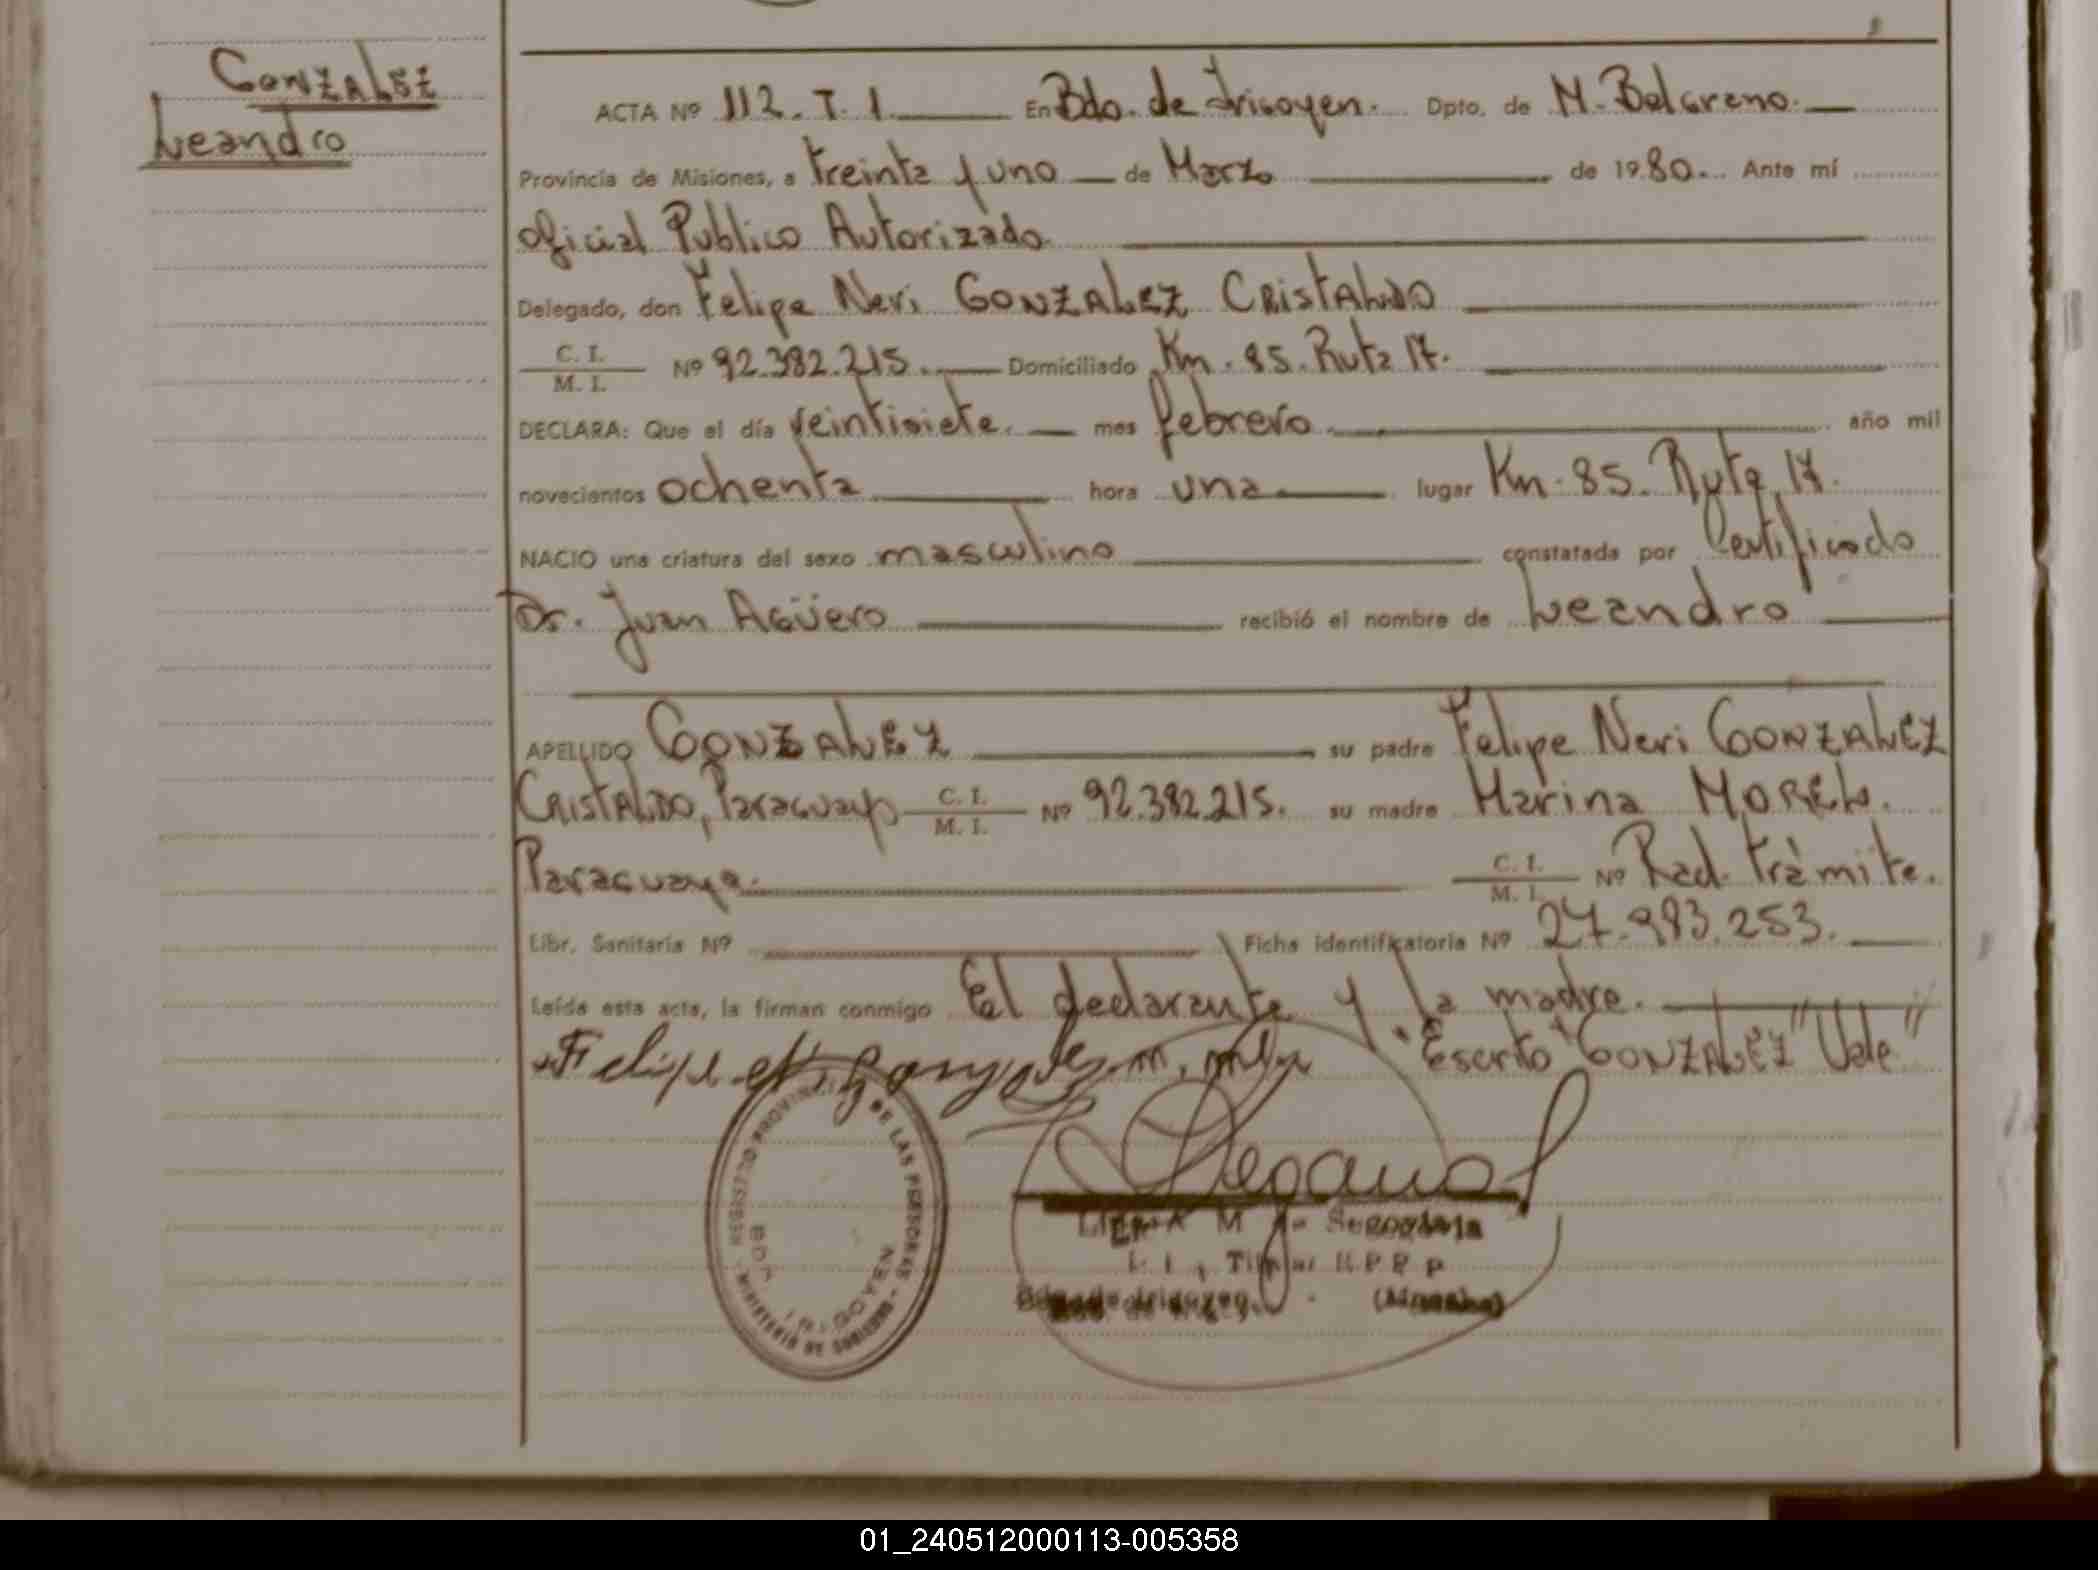 GONZALEZ
Leandro
ACTA Nº 112. T. 1. En Bdo. de Irigoyen. Dpto. de M. Belgrano.
Provincia de Misiones, a treinta y uno de Marzo de 1980. Ante mí
Oficial Publico Autorizado.
Delegado, don Felipe Neri GONZALEZ CRISTALDO
C. I.
M. I. Nº 92.382.215. Domiciliado Km. 85. Ruta 17.
DECLARA: Que el día veintisiete. mes febrero. año mil
novecientos ochenta hora una lugar Km. 85. Ruta 17.
NACIO una criatura del sexo masculino constatada por Certificado
Dr. Juan Agüero recibió el nombre de Leandro
APELLIDO GONZALEZ su padre Felipe Neri GONZALEZ
CRISTALDO, Paraguayo C. I. M. I. Nº 92.382.215. su madre Marina MOREL.
Paraguaya. C. I. M. I. Nº Rad. trámite.
Libr. Sanitaria Nº Ficha identificatoria Nº 27.983.253.
Leída esta acta, la firman conmigo El declarante y la madre.
Felipe N. Gonzalez. "Escrito "GONZALEZ" Vale"
REGISTRO PROVINCIAL DE LAS PERSONAS - MINISTERIO DE GOBIERNO -
BDO. IRIGOYEN
01_240512000113-005358